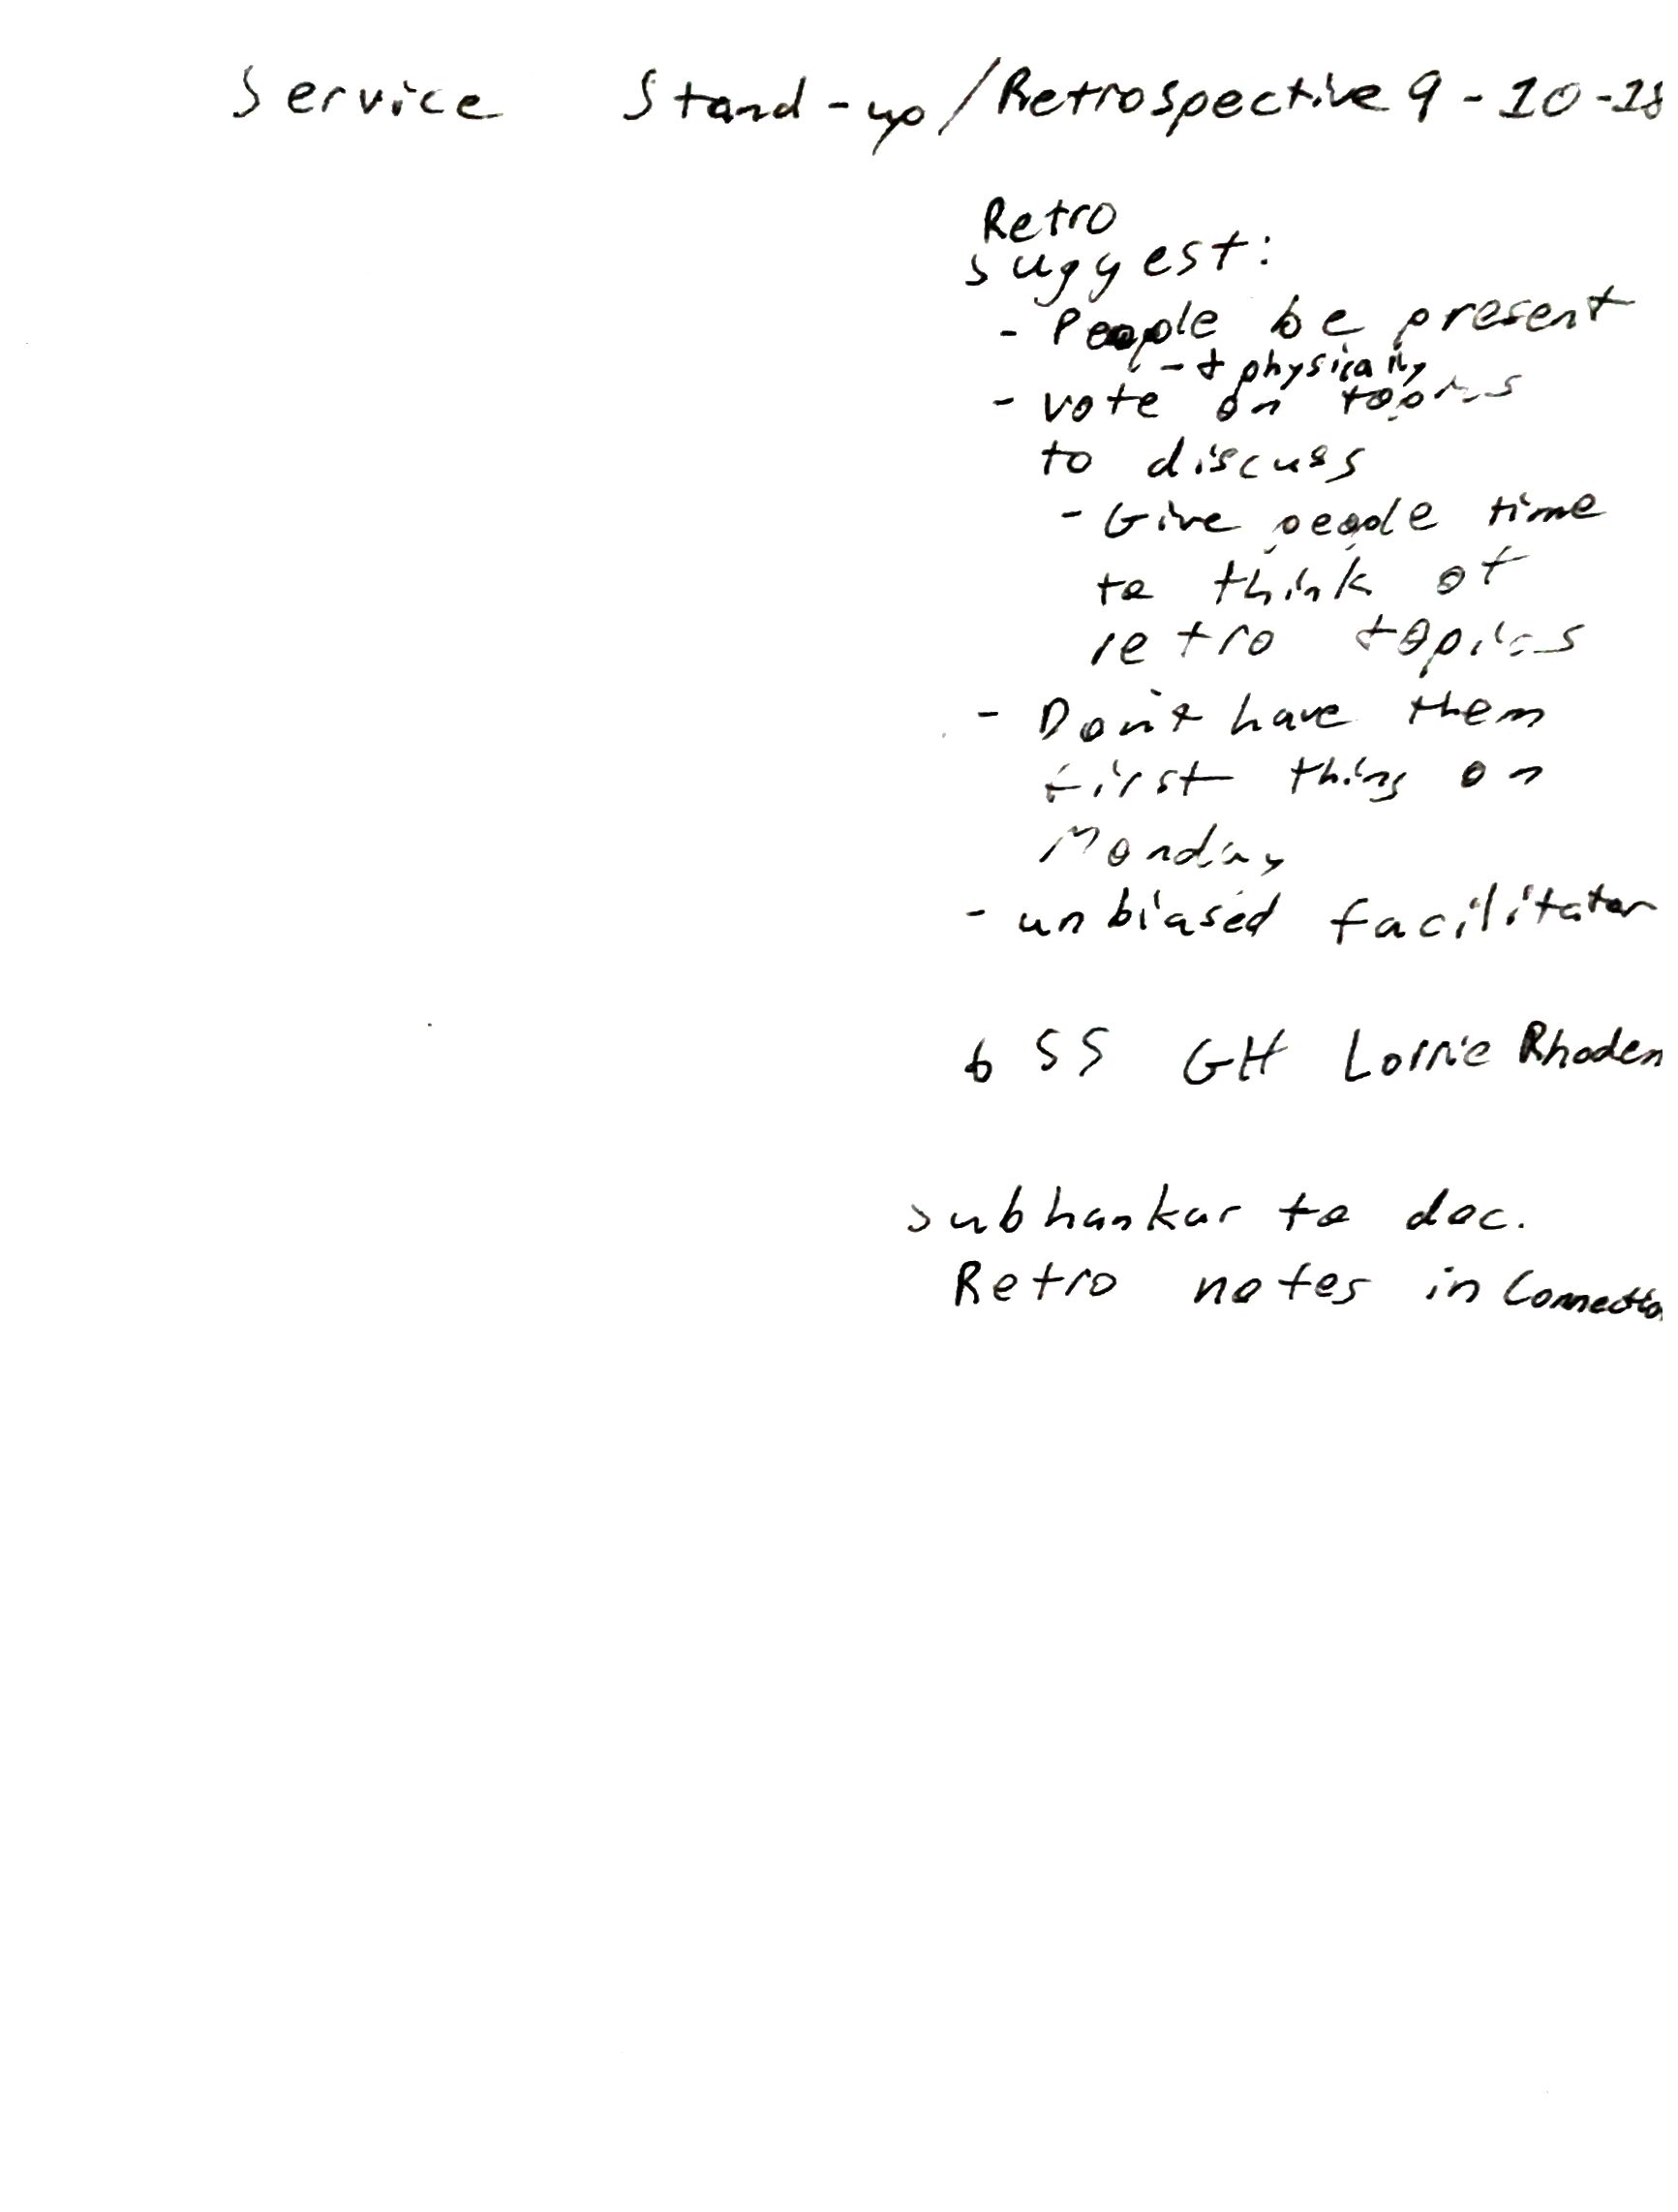 Service Stand-up/Retrospective 9-10-18
Retro
suggest:
- People be present
- + physically
- vote on topics
to discuss
- Give people time
to think of
retro topics
- Don't have them
first thing on
Monday
- unbiased facilitator
6 SS GH Lorrie Rhoden
Subhankar to doc.
Retro notes in